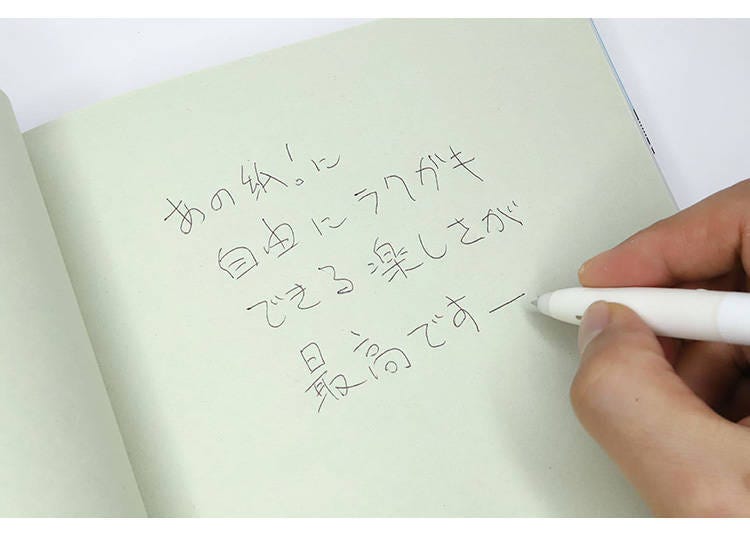 あの紙!に
自由にラクガキ
できる楽しさが
最高ですー